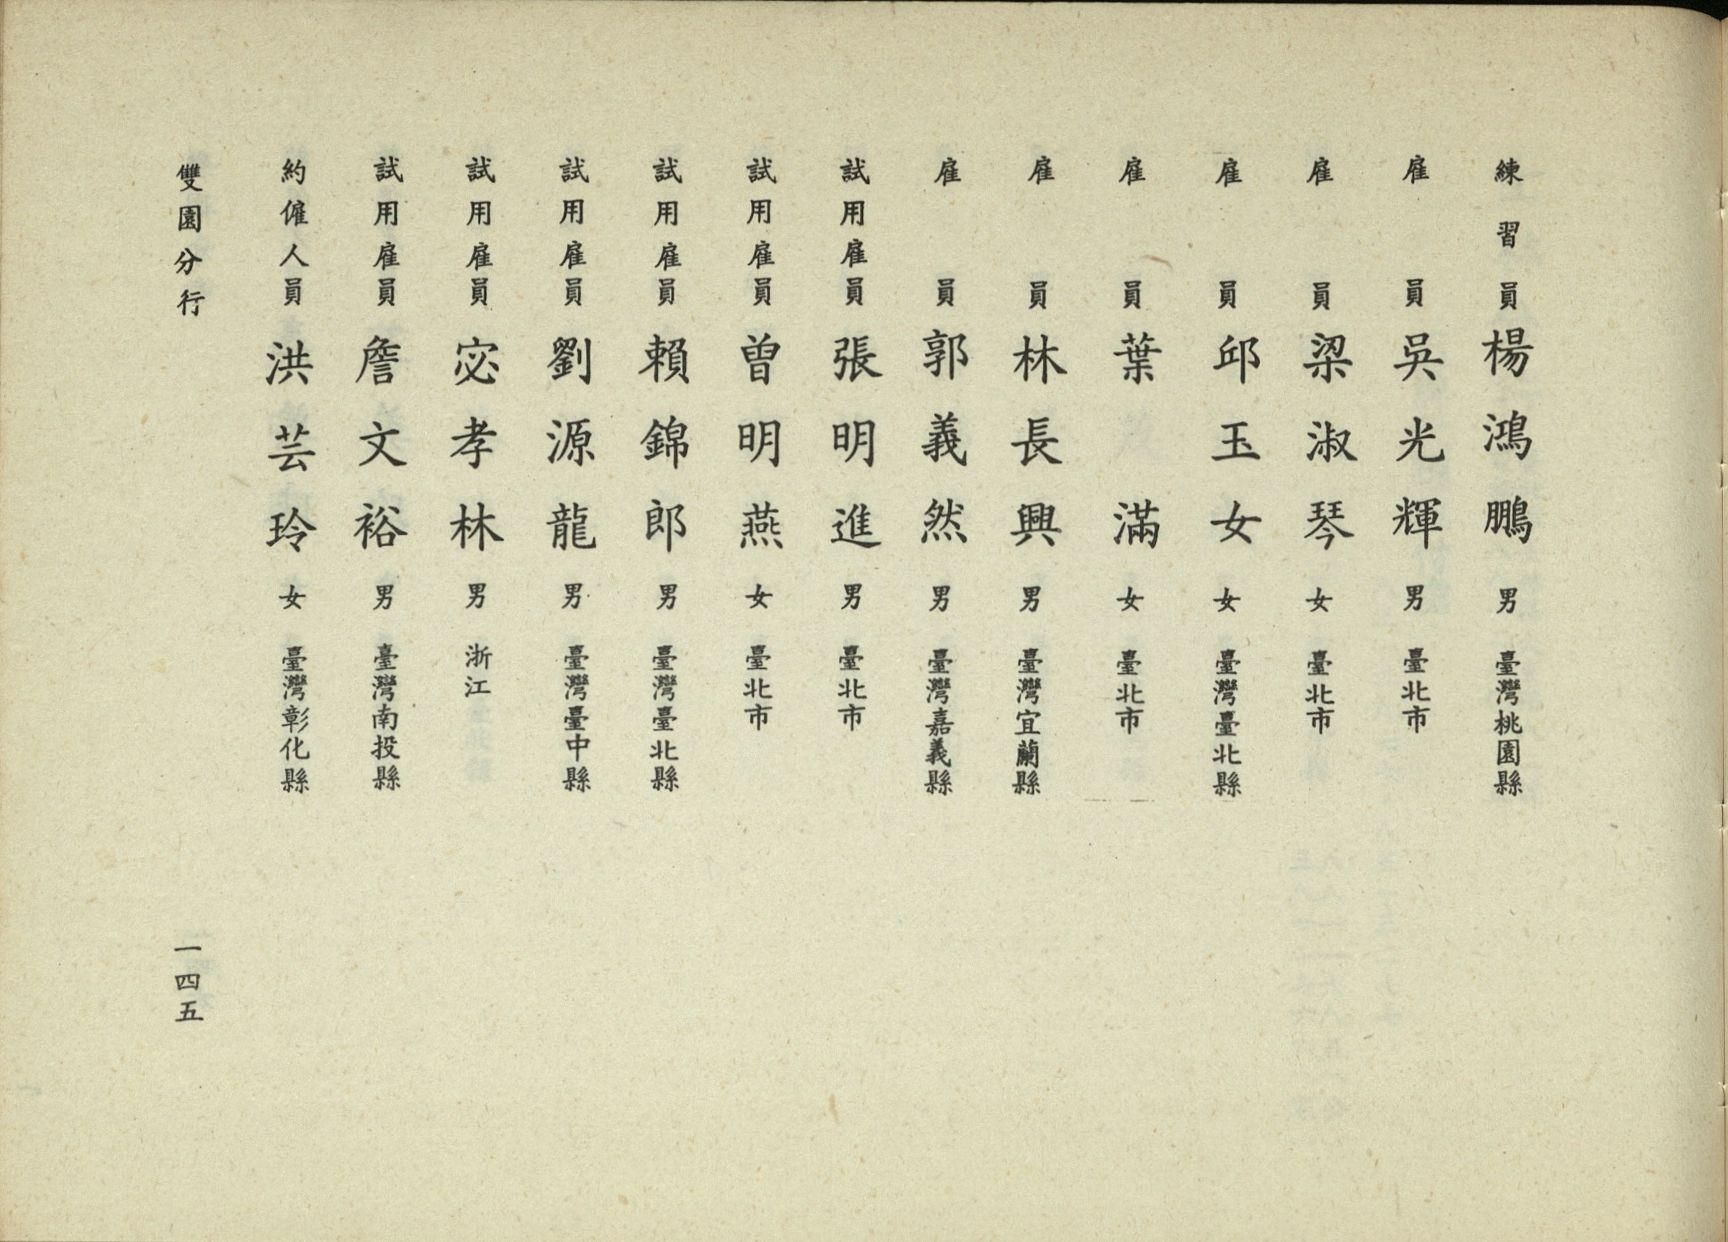 練習員楊鴻鵬男臺灣桃園縣
雇員吳光輝男臺北市
雇員梁淑琴女臺北市
雇員邱玉女女臺灣臺北縣
雇員葉滿女臺北市
雇員林長興男臺灣宜蘭縣
雇員郭義然男臺灣嘉義縣
試用雇員張明進男臺北市
試用雇員曾明燕女臺北市
試用雇員賴錦郎男臺灣臺北縣
試用雇員劉源龍男臺灣臺中縣
試用雇員宓孝林男浙江
試用雇員詹文裕男臺灣南投縣
約僱人員洪芸玲女臺灣彰化縣
雙園分行
一四五